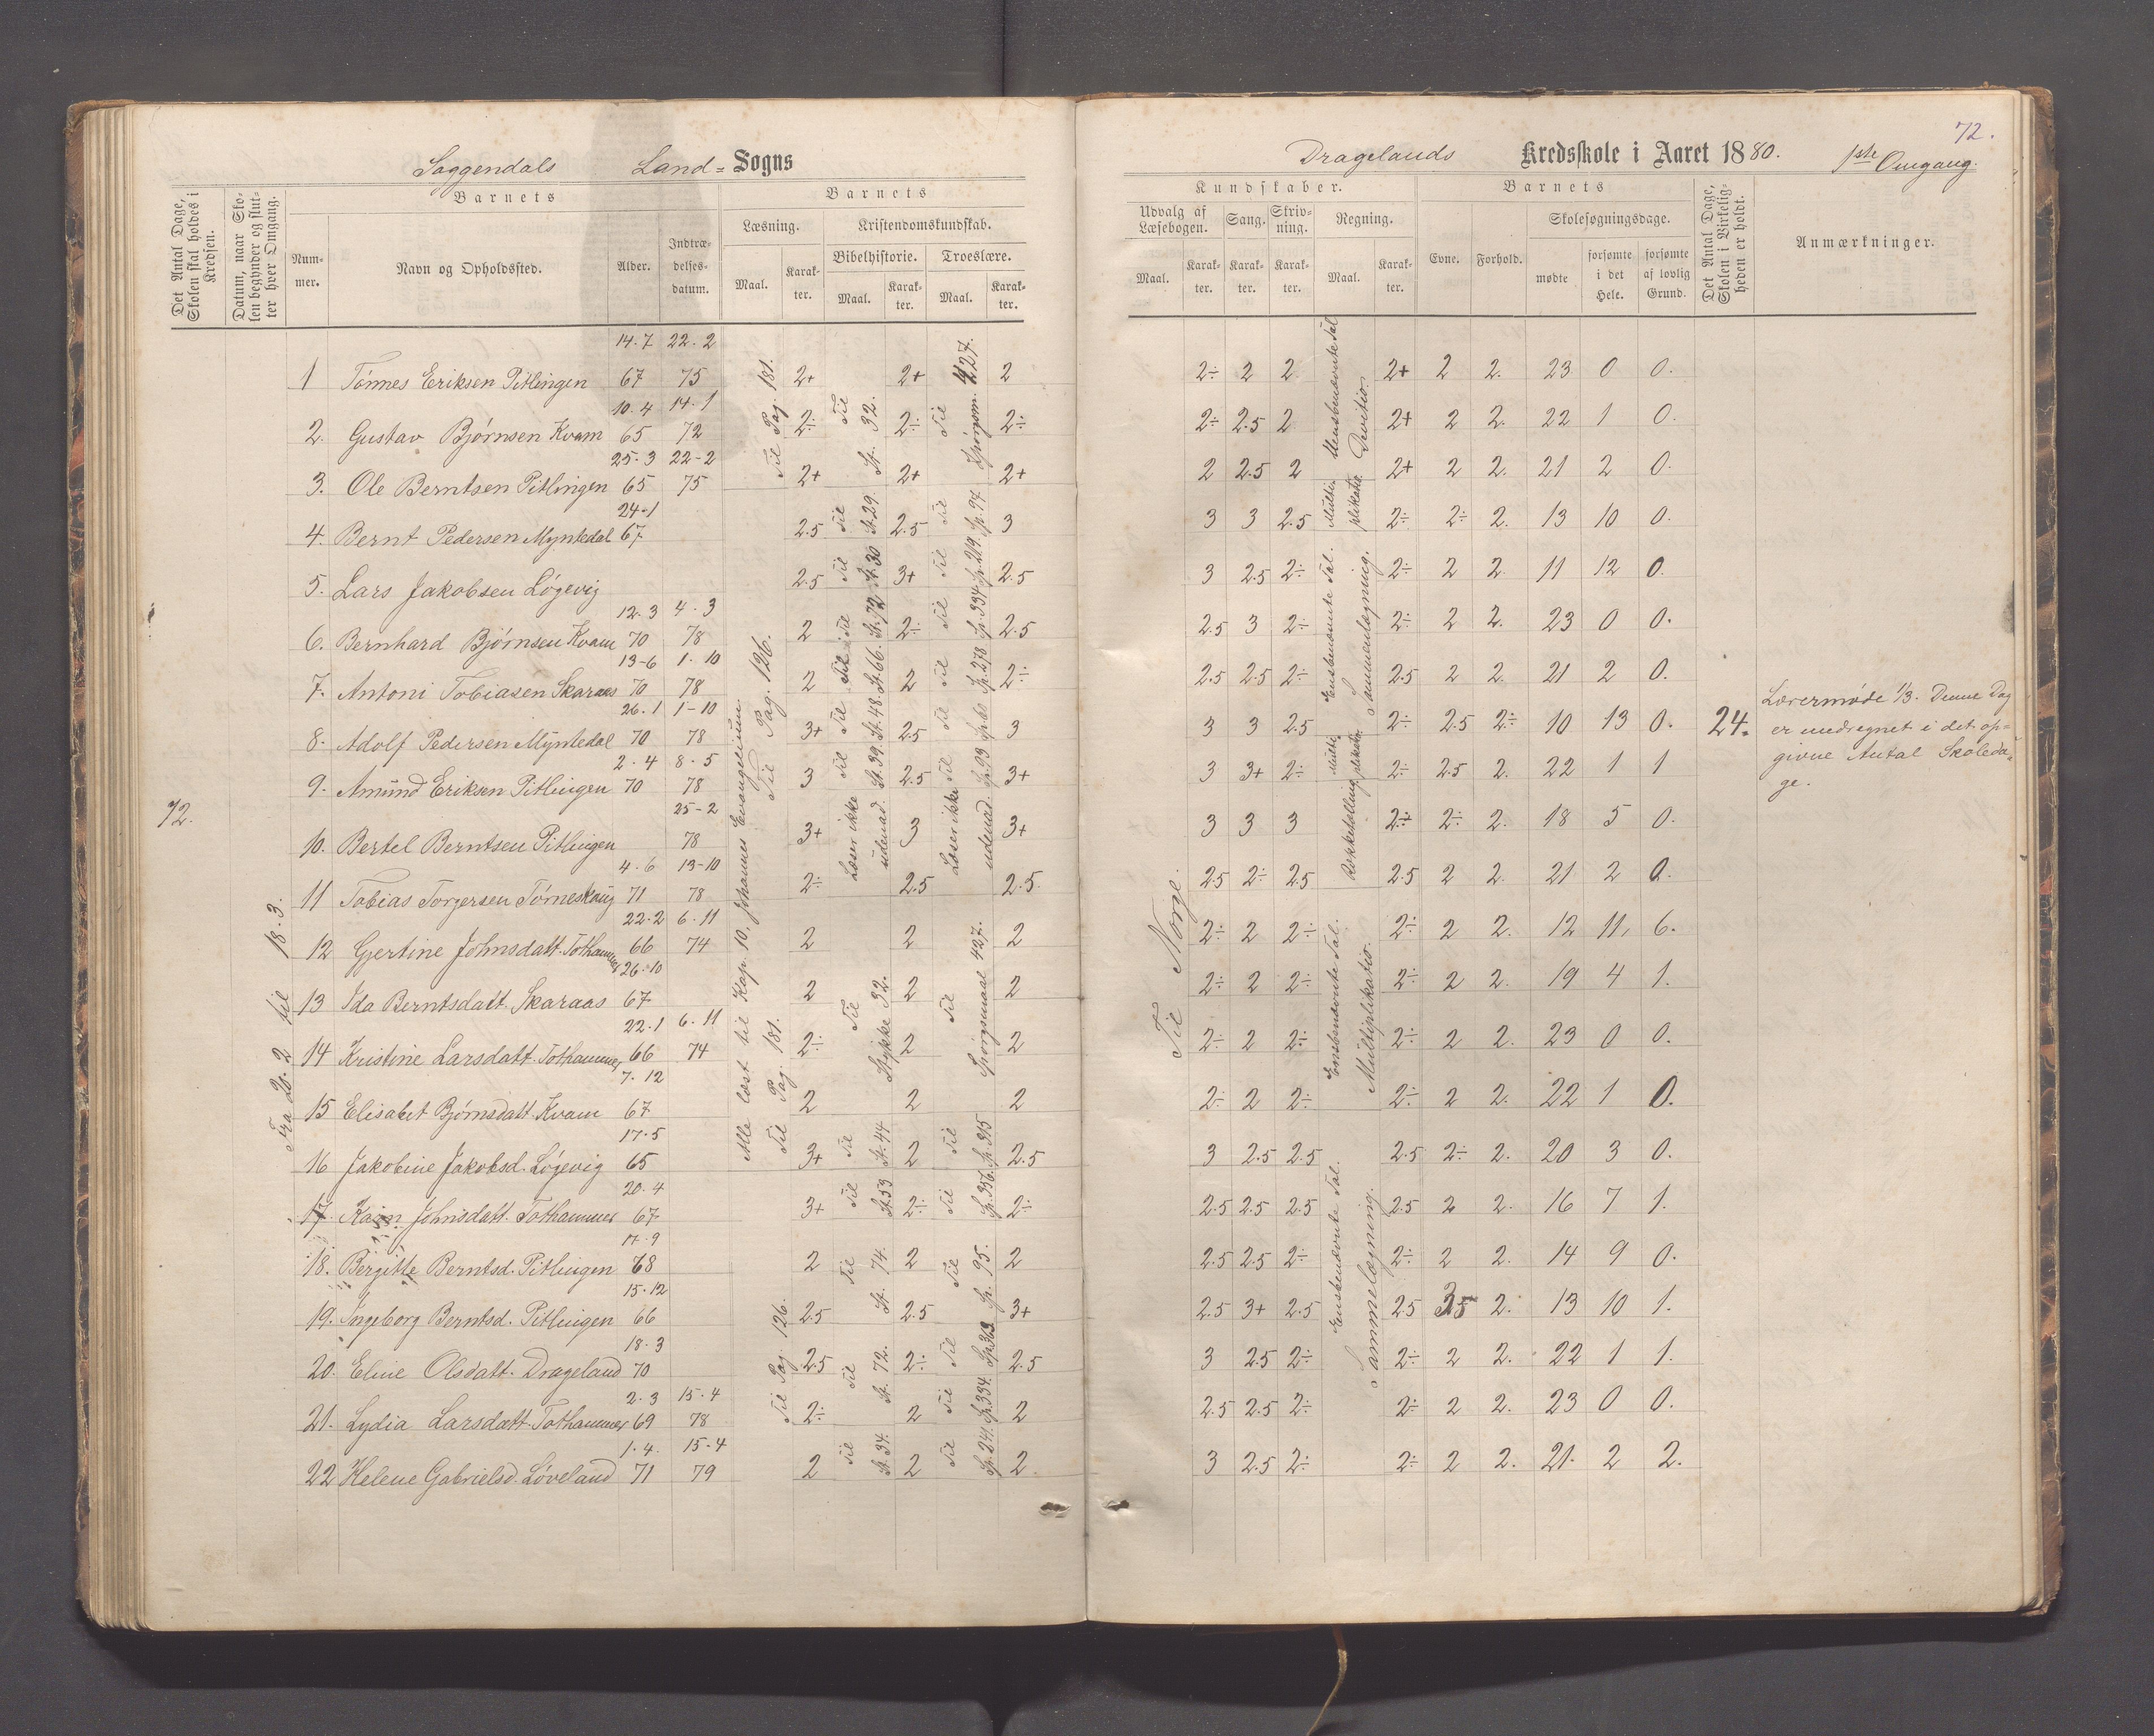 Soggendals Land = Sogns
Det Antal Dage, Skolen skal holdes i Kredsen.
Datum, naar Skolen begynder og slutter hver Omgang.
Barnets
Nummer.
Navn og Opholdssted.
Alder.
Indtrædelsesdatum.
Barnets
Læsning.
Maal.
Karakter.
Kristendomskundskab.
Bibelhistorie.
Maal.
Karakter.
Troeslære.
Maal.
Karakter.
72.
Fra 20.2 til 18.3.
14.7 22.2
1 Tónnes Eriksen Pitlingen 67 75 2+ 2+ 2
10.4 14.1
2. Gustav Bjørnsen Kvam 65 72 2÷ 2÷ 2÷
25.3 22-2
3. Ole Berntsen Pitlingen 65 75 2+ 2+ 2+
24.1
4. Bernt Pedersen Myntedal 67 2.5 2.5 3
5. Lars Jakobsen Løgevig 2.5 3+ 2.5
12.3 4.3
6. Bernhard Bjørnsen Kvam 70 78 2 2÷ 2.5
13-6 1.10
7. Antoni Tobiasen Skaraas 70 78 2 2 2÷
26.1 1-10
8. Adolf Pedersen Myntedal 70 78 3+ 2.5 3
2.4 8.5
9. Amund Eriksen Pitlingen 70 78 3 2.5 3+
25-2
10. Bertel Berntsen Pitlingen 78 3+ 3 3+
4.6 13-10
11 Tobias Torgersen Tórneskaug 71 78 2÷ 2.5 2.5
22.2 6.11
12 Gjertine Johnsdatt. Tothammer 66 74 2 2 2
26.10
13 Ida Berntsdatt. Skaraas 67 2 2 2
22.1 6.11
14 Kristine Larsdatt. Tothammer 66 74 2÷ 2 2
7.12
15 Elisabet Bjørnsdatt. Kvam 67 2 2 2
17.5
16 Jakobine Jakobsd. Løgevig 65 3+ 2 2.5
20.4
17. Karin Johnsdatt. Tothammer 67 3+ 2÷ 2÷
17.9
18. Bergitte Berntsd. Pitlingen 68 2 2 2
15.12
19. Ingeborg Berntsd. Pitlingen 66 2.5 2.5 3+
18.3
20. Eline Olsdatt. Drageland 70 2.5 2÷ 2.5
2.3 15.4
21. Lydia Larsdatt. Tothammer 69 78 2÷ 2 2
1.4. 15.4
22 Helene Gabrielsd. Løveland 71 79 2 2 2
Alle læst til Kap. 10, Johannes Evangelium.
Til Pag. 181.
Til Pag. 126.
Til Pag. 181.
Til Pag. 126.
Til St. 32.
Til St. 29.
Til St. 30
Til St. 72
Til St. 66.
Til St. 48.
Til St. 39.
Læser ikke udenad.
Til Stykke 32.
Til St. 44
Til St. 53
Til St. 74.
Til St. 72.
Til St. 34.
Til Spørgsm. 427.
Til Sp. 97
Til Sp. 219.
Til Sp. 334
Til Sp. 278
Til Sp. 60
Til Sp. 93
Læser ikke udenad.
Til Spørgsmaal 427.
Til Sp. 315
Til Sp. 356.
Til Sp. 95.
Til Sp. 363
Til Sp. 334.
Til Sp. 241.
72.
Dragelands Kredsskole i Aaret 1880. 1ste Omgang.
Kundskaber.
Udvalg af Læsebogen.
Maal.
Karakter.
Sang.
Karakter.
Skrivning.
Karakter.
Regning.
Maal.
Karakter.
Barnets
Evne.
Forhold.
Skolesøgningsdage.
mødte
forsømte i det Hele.
forsømte af lovlig Grund.
Det Antal Dage, Skolen i Virkeligheden er holdt.
Anmærkninger.
Til Norge.
2÷ 2 2 2+ 2 2. 23 0 0.
2÷ 2.5 2 2+ 2 2. 22 1 0.
2 2.5 2 2+ 2 2. 21 2 0.
3 3 2.5 2÷ 2÷ 2. 13 10 0.
3 2.5 2÷ 2÷ 2 2. 11 12 0.
2.5 3 2÷ 2÷ 2 2. 23 0 0.
2.5 2.5 2÷ 2.5 2 2. 21 2 0.
3 3 2.5 2÷ 2.5 2÷ 10 13 0.
3 3+ 2÷ 2÷ 2.5 2. 22 1 1
3 3 3 2÷ 2÷ 2. 18 5 0.
2.5 2÷ 2.5 2.5 2 2. 21 2 0.
2÷ 2 2÷ 2÷ 2 2. 12 11, 6.
2÷ 2 2÷ 2÷ 2 2. 19 4 1.
2÷ 2 2÷ 2÷ 2 2. 23 0 0.
2÷ 2 2÷ 2÷ 2 2. 22 1 0.
3 2.5 2.5 2.5 2÷ 2. 20 3 0.
2.5 2.5 2.5 2.5 2 2. 16 7 1.
2.5 2.5 2÷ 2÷ 2 2. 14 9 0.
2.5 3+ 2.5 2.5 2. 13 10 1.
3 2.5 2÷ 2÷ 2 2. 22 1 1.
2.5 2.5 2÷ 2÷ 2 2. 23 0 0.
3 2.5 2÷ 2÷ 2 2. 21. 2 2.
Uensbenævnte Tal Divisio.
Multiplikatio.
Ensbenævnte Tal. Sammenlægning.
Multiplikatio
Rækketælling
Ensbenævnte Tal. Multiplikatio.
Ensbenævnte Tal. Sammelægning.
24.
Lærermøde 1/3. Denne Dag
er medregnet i det op=
givne Antal Skoleda=
ge.